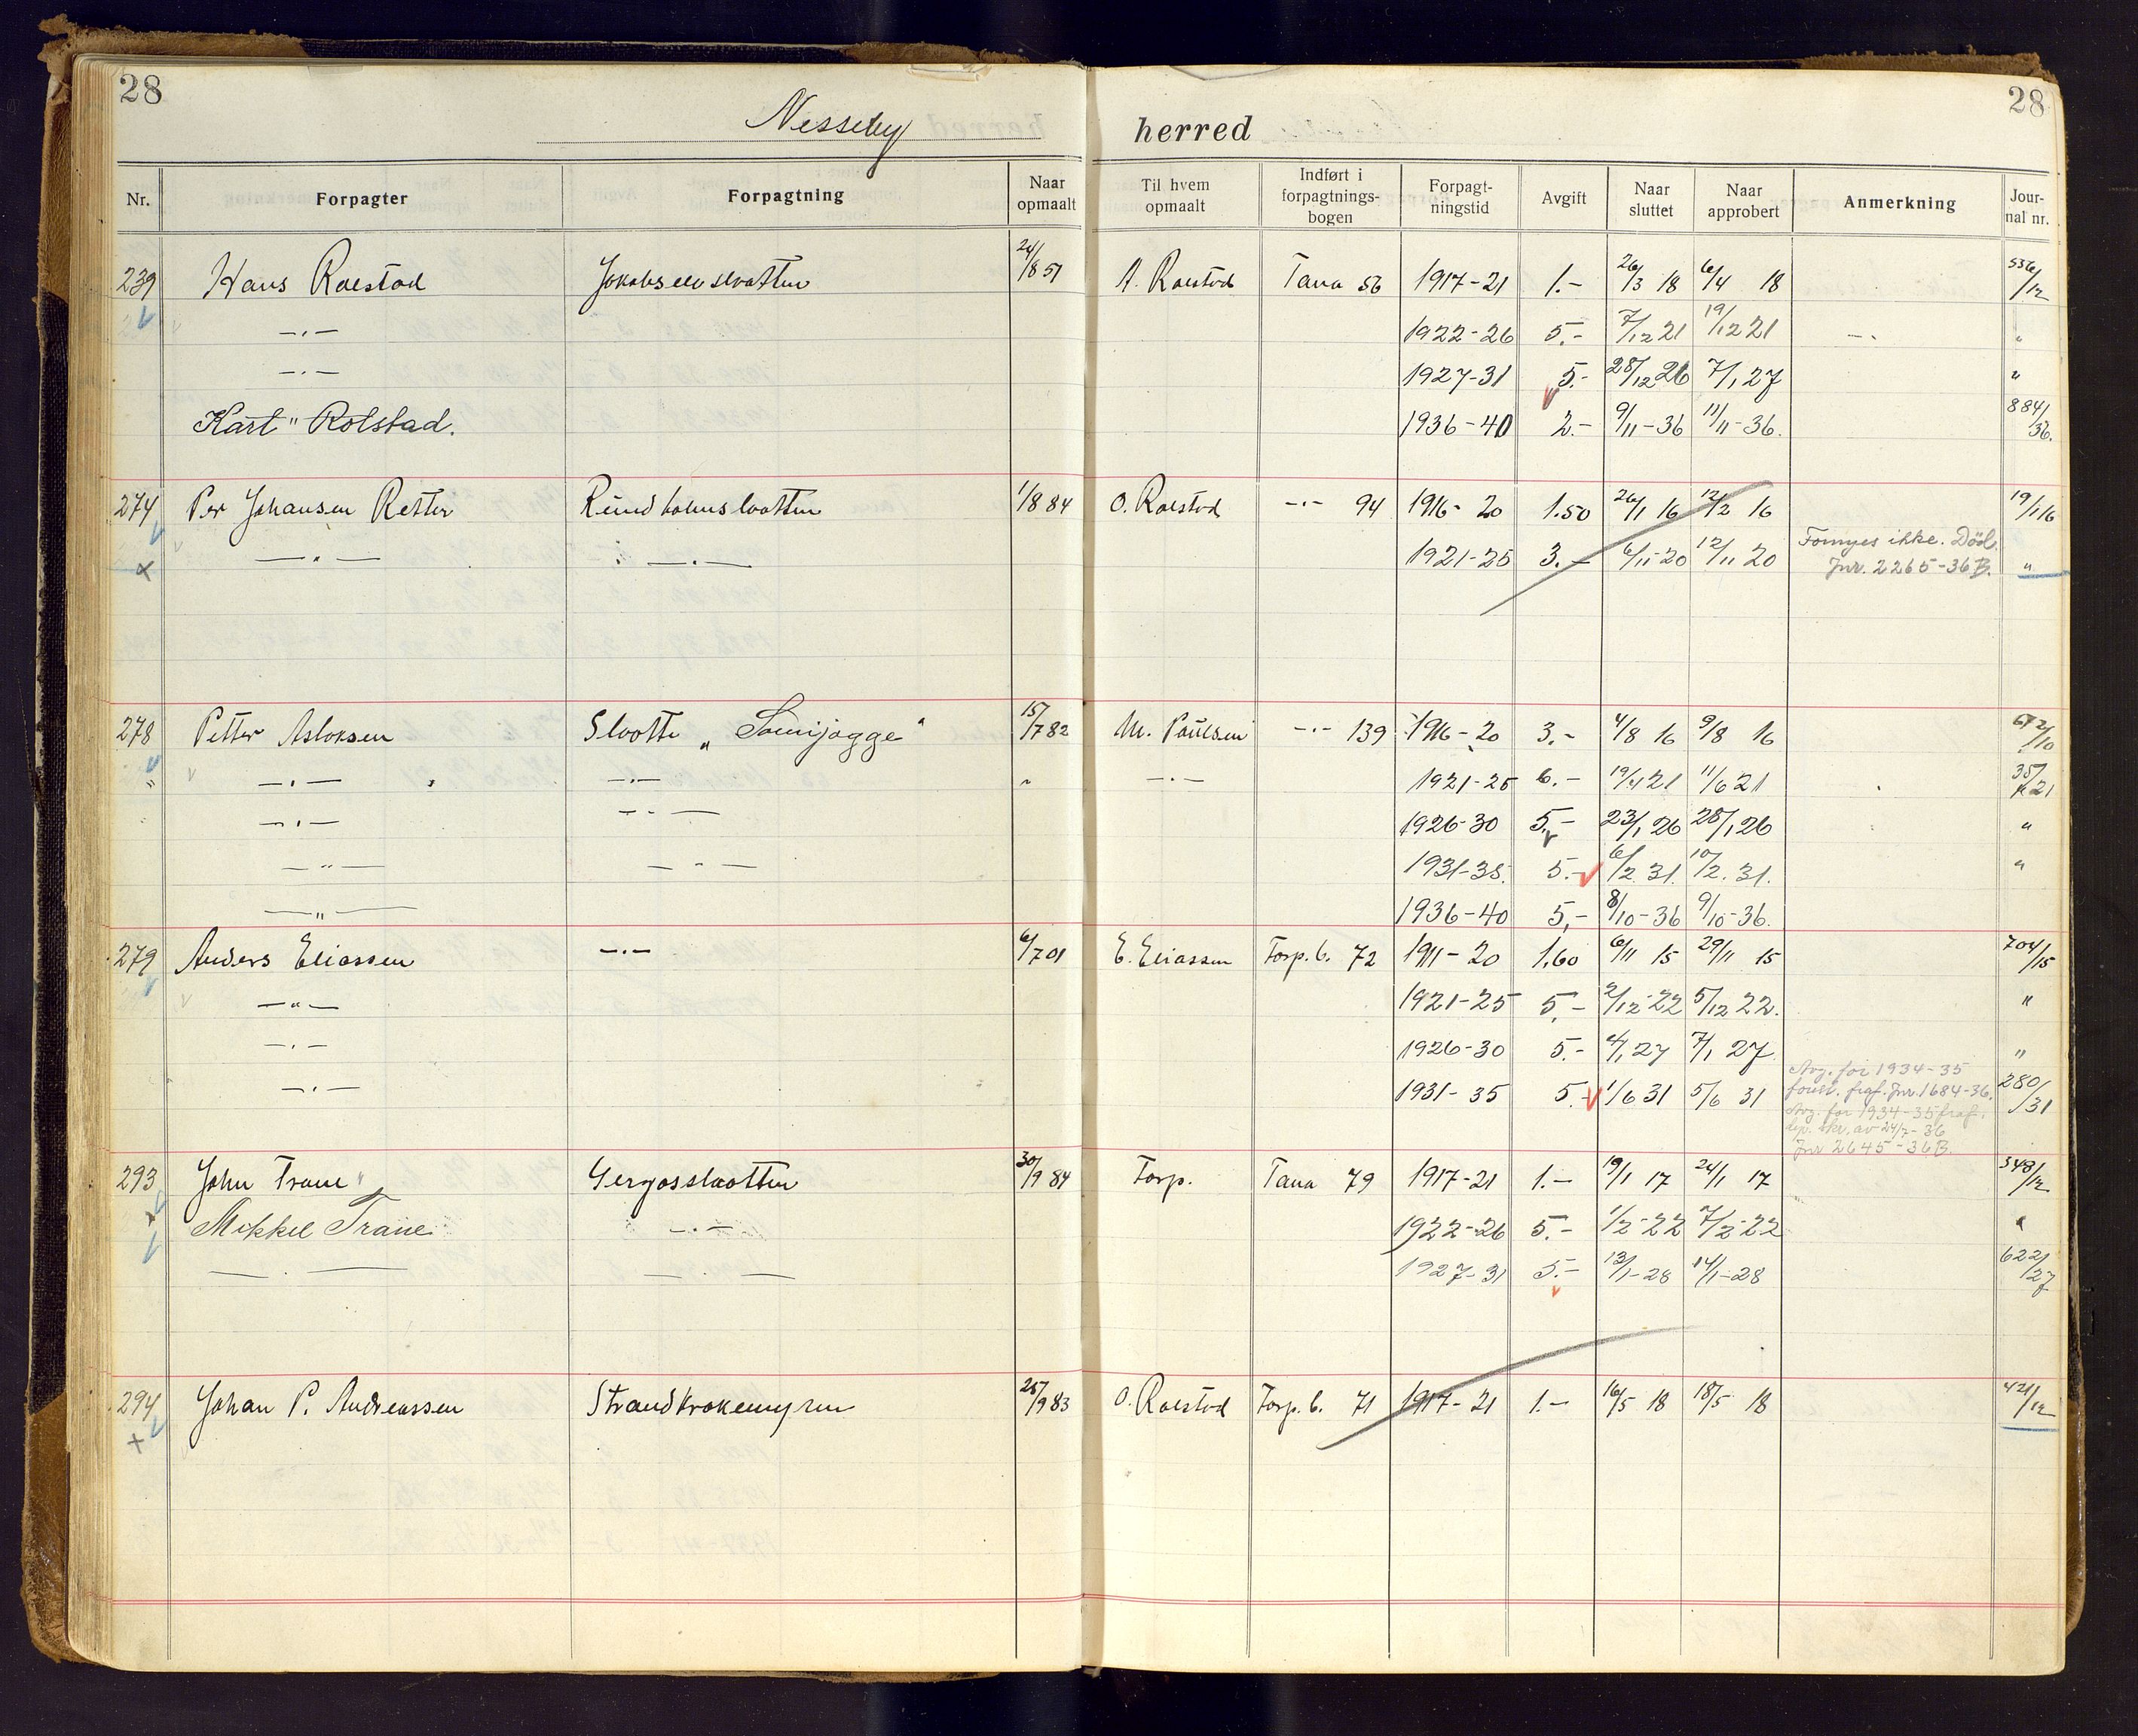 28
Nesseby herred
28
Nr. Forpagter Forpagtning Naar opmaalt Til hvem opmaalt Indført i forpagtnings-bogen Forpagt-ningstid Avgift Naar sluttet Naar approbert Anmerkning Jour-nal nr.
239 Hans Rolstad Jakobselvslaatten 24/8 51 A. Rolstad Tana 56 1917-21 1.- 26/3 18 6/4 18 536/12
-"- 1922-26 5.- 7/12 21 19/12 21 "
-"- 1927-31 5.- 28/12 26 7/1 27 "
Karl Rolstad. 1936-40 2.- 9/11-36 11/11-36. 884/36.
274 Per Johansen Retter Rundholmslaatten 1/8 84 O. Rolstad -"- 94 1916-20 1.50 26/1 16 12/2 16 19/1 16
-"- -"- 1921-25 3.- 6/11-20 12/11 20 Fornyes ikke. Död. "
Jnr. 2265-36 B.
278 Petter Aslaksen Slaatte „ Somijogge " 15/7 82 M. Paulsen -"- 139 1916-20 3.- 4/8 16 9/8 16 672/10
" -"- -"- " -"- 1921-25 6.- 19/4 21 11/6 21 35/21
-"- -"- 1926-30 5.- 23/1 26 28/1 26 "
-"- -"- 1931-35. 5.- 6/2 31. 10/2. 31. "
-"- 1936-40 5,- 8/10-36 9/10-36.
279 Anders Eliassen -"- 6/7 01 E. Eliassen Forp. b. 72 1911-20 1,60 6/11 15 29/11 15 704/15
-"- 1921-25 5,- 2/12-22 5/12 22. "
-"- 1926-30 5.- 4/1 27 7/1 27 "
-"- 1931-35 5.- 1/6 31 5/6 31 280/31
Avg. for 1934-35
Jnr. 1684-36.
Avg. for 1934-35
skr. av 24/7-36
Jnr 2645-36 B.
293 John Trane Gergosslaatten 30/9 84 Forp. Tana 79 1917-21 1.- 19/1 17 24/1 17 348/12
Mikkel Trane -"- 1922-26 5.- 1/2-22 7/2-22 "
-"- -"- 1927-31 5.- 13/1-28 14/1-28 622/27
294 Johan P. Andreassen Strandkrokemyren 25/9 83 O. Rolstad Forp. b. 71 1917-21 1.- 16/5 18 18/5 18 421/12